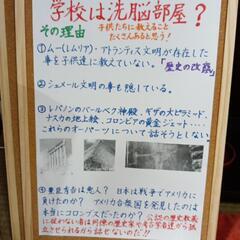 学校は洗脳部屋？
その理由
子供たちに教えること
たくさんあると思う！
①ムー(レムリア)・アトランティス文明が存在した
事を子供達に教えていない。「歴史の改竄」
②シュメール文明の事も隠している。
③レバノンのバールベク神殿、ギザの大ピラミッド、
ナスカの地上絵、コロンビアの黄金ジェット・・・
これらのオーパーツについて話そうとしない。
④東京裁判は悪人？日本は戦争でアメリカに
負けたのか？アメリカ合衆国を発見したのは
本当にコロンブスだったのか？公認の歴史教義
に従わない者は同僚の歴史家や考古学者達から孤
立させられるから話せないのだ!!